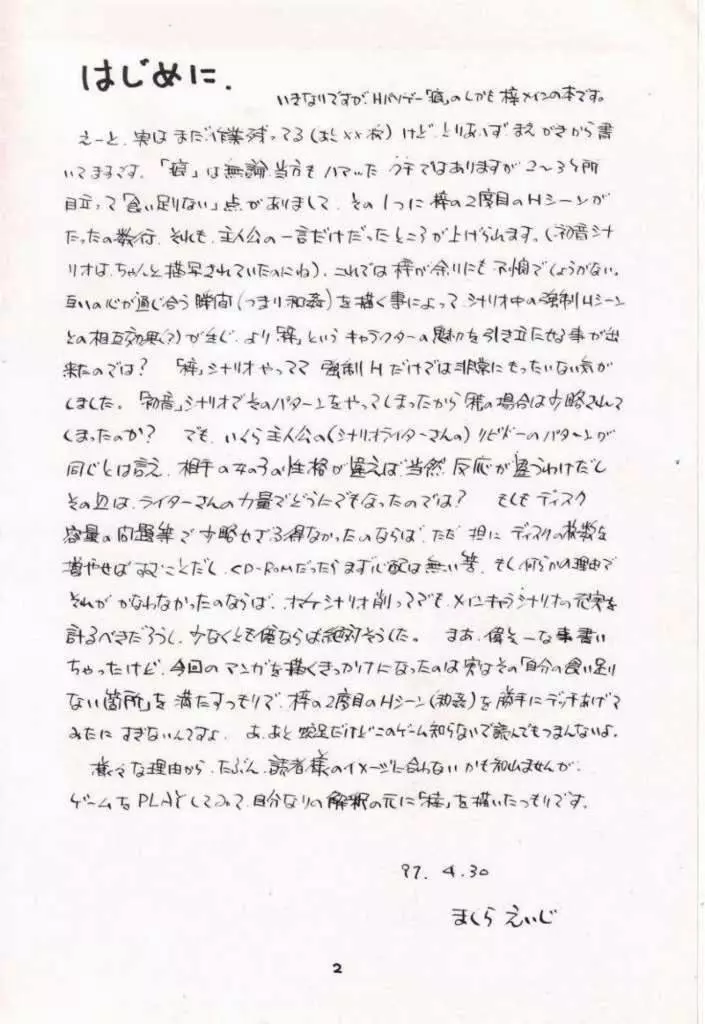 はじめに.
いきなりですが、Hパソゲー「痕」のしかも 梓メインの本です。
えーと、実は まだ作業残ってる(あと××枚)けど、とりあえず まえがきから書
いてますです。「痕」は無論、当方も ハマった クチではありますが 2〜3ヶ所
目立って「食い足りない」点がありまして、その1つに 梓の2度目のHシーンが
たったの数行、それも、主人公の一言だけだったところが上げられます。(初音シナ
リオは、ちゃんと描写されていたのにね)、これでは梓が余りにも 不憫でしょうがない。
互いの心が通じ合う瞬間(つまり和姦)を描く事によって、シナリオ中の強制Hシーン
との相互効果(?)が生じ、より「梓」という キャラクターの魅力を引き立たせる事が出
来たのでは? 「梓」シナリオやってて 強制Hだけでは非常にもったいない気が
しました。「初音」シナリオでそのパターンをやってしまったから 梓の場合は少略されて
しまったのか? でも、いくら主人公の(シナリオライターさんの) リビドーのパターンが
同じとは言え、相手の女の子の性格が違えば、当然 反応が違うわけだし
その辺は、ライターさんの力量でどうにでもなったのでは? もしも ディスク
容量の問題等で少略せざる得なかったのならば、ただ 担に ディスクの枚数を
増やせばすむことだし、CD-ROMだったらまず心配は無い筈、もし何らかの理由で
それが かなわなかったのならば、オマケシナリオ削ってでも、メインキャラシナリオの充実を
計るべきだろうし、少なくとも俺ならば絶対そうした。 まあ、偉そーな事書い
ちゃったけど、今回のマンガを描くきっかけになったのは実はその「自分の食い足り
ない箇所」を満たすつもりで、梓の2度目のHシーン(和姦)を勝手にデッチあげて
みたにすぎないんですよ、あ、あと 蛇足だけどこのゲーム知らないで読んでもつまんないよ。
様々な理由から、たぶん、読者様のイメージに合わないかも知れませんが、
ゲームをPLAYしてみて、自分なりの解釈の元に「梓」を描いたつもりです。
97. 4.30
まくら えいじ
2